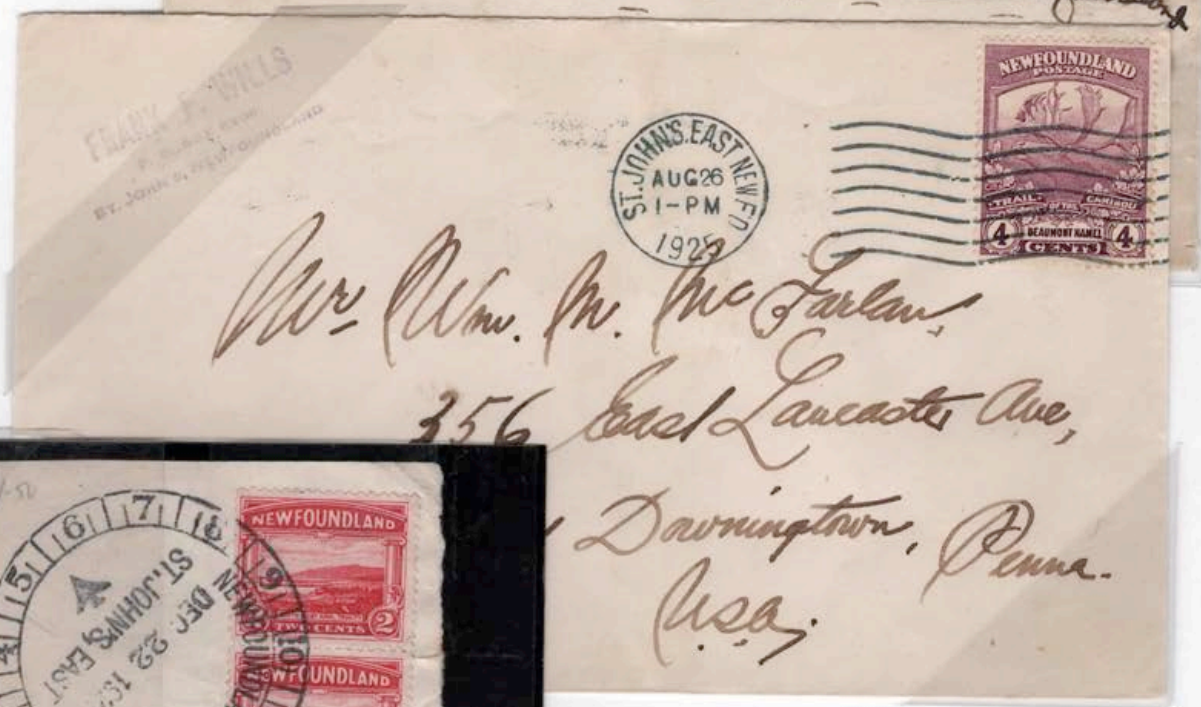 FRANK F. WILLS
ST. JOHN'S, NEWFOUNDLAND
ST. JOHN'S. EAST NEWF'D
AUG 26
1-PM
1925
NEWFOUNDLAND
POSTAGE
TRAIL OF THE CARIBOU
4 BEAUMONT HAMEL 4
CENTS
Mr Wm. M. McFarlan,
356 East Lancaster Ave,
Downingtown, Penna.
U.S.a.
5 6 7 8 9 10
ST. JOHN'S, EAST
DEC 22
NEWFOUNDL
NEWFOUNDLAND
TWO CENTS 2
NEWFOUNDLAND